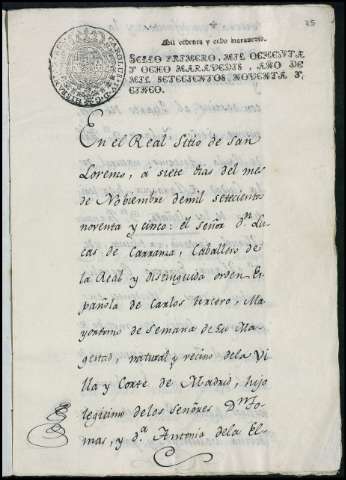 25
Mil ochenta y ocho maravedis.
SELLO PRIMERO, MIL OCHENTA
Y OCHO MARAVEDIS, AÑO DE
MIL SETECIENTOS NOVENTA Y
CINCO.
En el Real Sitio de San
Lorenzo, a siete dias del mes
de Nobiembre demil setecientos
noventa y cinco: el señor Dn. Lu-
cas de Carranza, Caballero de
la Real y distinguida orden Es-
pañola de Carlos tercero, Ma-
yordomo de Semana de Su Ma-
gestad, natural y vecino dela Vi-
lla y Corte de Madrid, hijo
legitimo delos señores Dn. To-
mas, y Da. Antonia dela